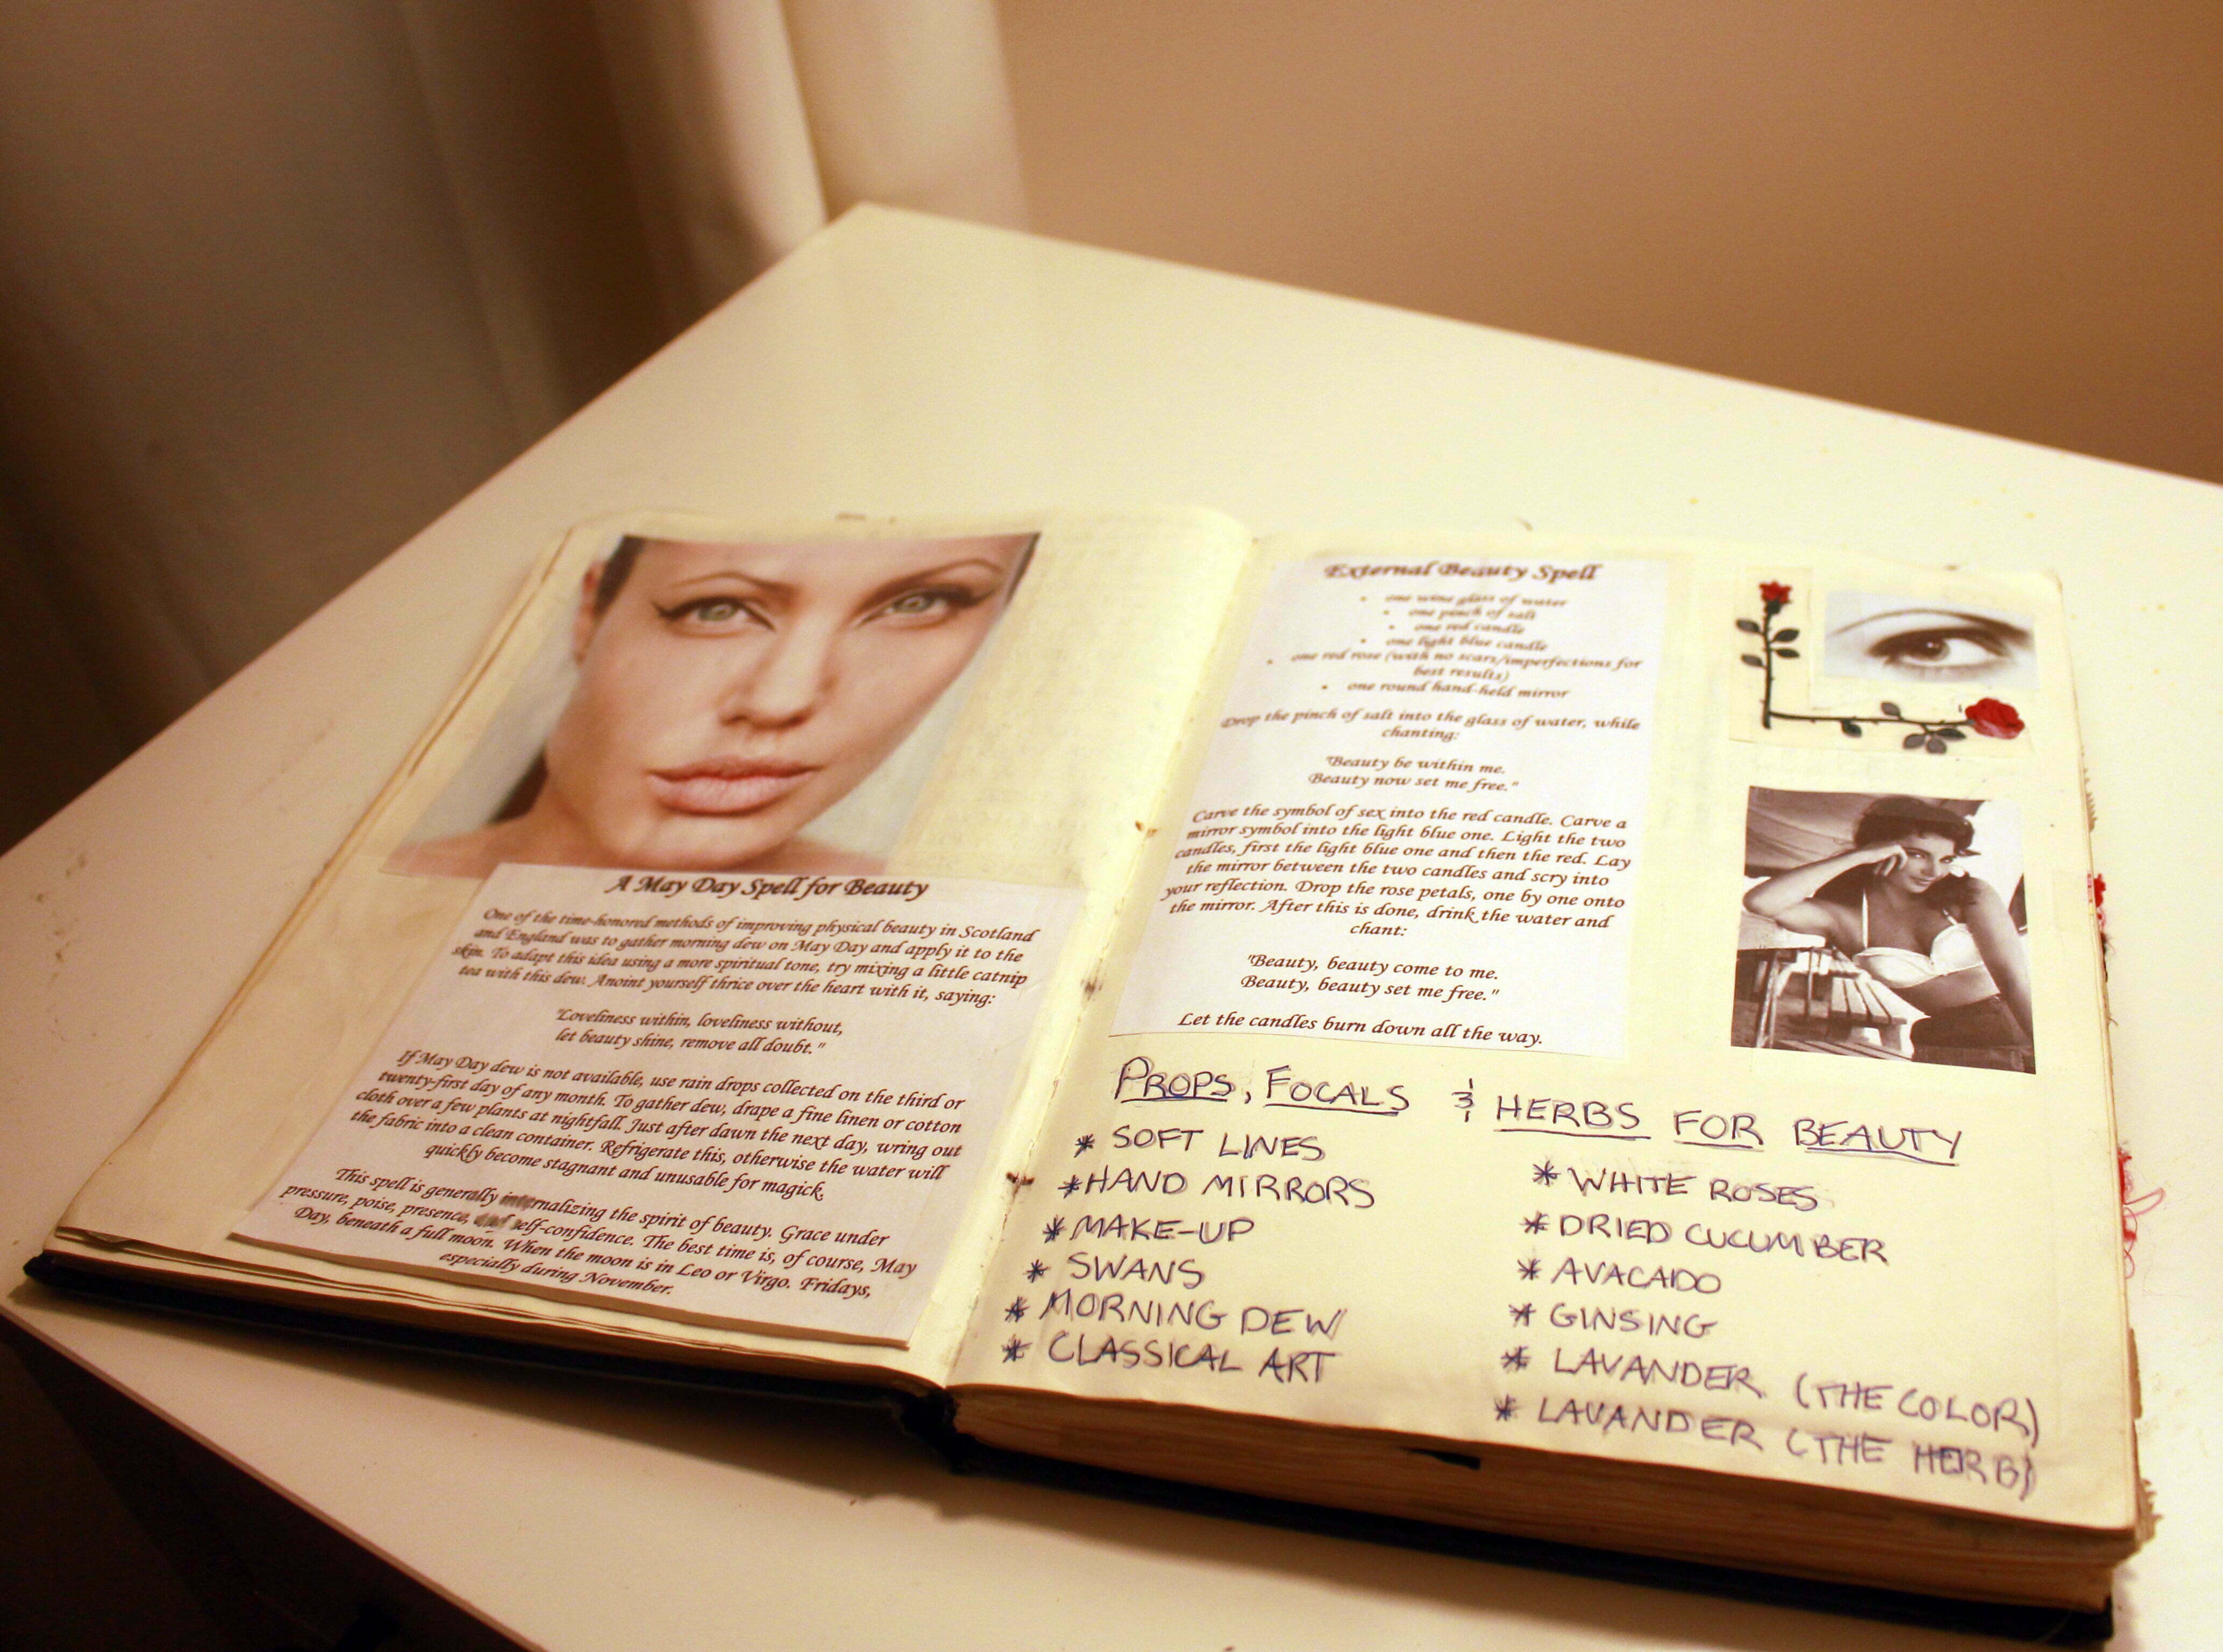 A May Day Spell for Beauty
One of the time-honored methods of improving physical beauty in Scotland
and England was to gather morning dew on May Day and apply it to the
skin. To adapt this idea using a more spiritual tone, try mixing a little catnip
tea with this dew. Anoint yourself thrice over the heart with it, saying:
"Loveliness within, loveliness without,
let beauty shine, remove all doubt."
If May Day dew is not available, use rain drops collected on the third or
twenty-first day of any month. To gather dew, drape a fine linen or cotton
cloth over a few plants at nightfall. Just after dawn the next day, wring out
the fabric into a clean container. Refrigerate this, otherwise the water will
quickly become stagnant and unusable for magick.
This spell is generally internalizing the spirit of beauty. Grace under
pressure, poise, presence, and self-confidence. The best time is, of course, May
Day, beneath a full moon. When the moon is in Leo or Virgo. Fridays,
especially during November.
External Beauty Spell
• one wine glass of water
• one pinch of salt
• one red candle
• one light blue candle
• one red rose (with no scars/imperfections for
best results)
• one round hand-held mirror
Drop the pinch of salt into the glass of water, while
chanting:
"Beauty be within me.
Beauty now set me free."
Carve the symbol of sex into the red candle. Carve a
mirror symbol into the light blue one. Light the two
candles, first the light blue one and then the red. Lay
the mirror between the two candles and scry into
your reflection. Drop the rose petals, one by one onto
the mirror. After this is done, drink the water and
chant:
"Beauty, beauty come to me.
Beauty, beauty set me free."
Let the candles burn down all the way.
PROPS, FOCALS & HERBS FOR BEAUTY
* SOFT LINES
* HAND MIRRORS
* MAKE-UP
* SWANS
* MORNING DEW
* CLASSICAL ART
* WHITE ROSES
* DRIED CUCUMBER
* AVACADO
* GINSING
* LAVANDER (THE COLOR)
* LAVANDER (THE HERB)